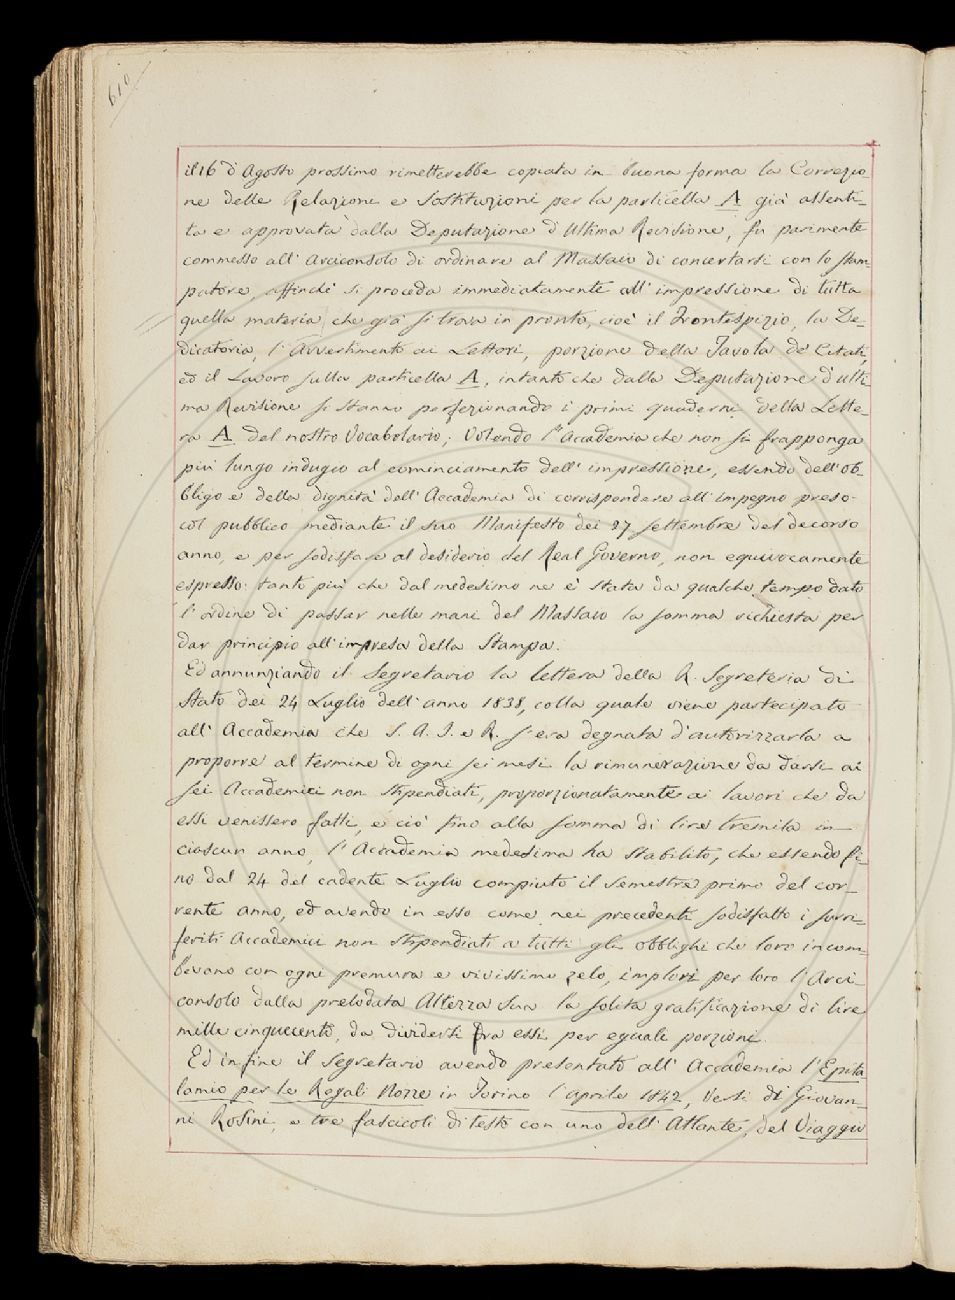 610
il 16 d'Agosto prossimo rimetterebbe copiata in buona forma la Correzio-
ne delle Relazioni e Sostituzioni per la particella A già assenti-
ta e approvata dalla Deputazione d'Ultima Revisione, fu parimente
commesso all'Arciconsolo di ordinare al Massaio di concertarsi con lo stam-
patore, affinché si proceda immediatamente all'impressione di tutta
quella materia, che già si trova in pronto, cioè il Frontespizio, la De-
dicatoria, l'Avvertimento ai Lettori, porzione della Tavola de' Citati,
ed il Lavoro sulla particella A, intanto che dalla Deputazione d'ulti-
ma Revisione si stanno perfezionando i primi quaderni della Lette-
ra A del nostro Vocabolario; Volendo l'Accademia che non si frapponga
più lungo indugio al cominciamento dell'impressione, essendo dell'ob-
bligo e della dignità dell'Accademia di corrispondere all'impegno preso
col pubblico mediante il suo Manifesto dei 27 settembre del decorso
anno, e per sodisfare al desiderio del Real Governo, non equivocamente
espresso: tanto più che dal medesimo ne è stata da qualche tempo dato
l'ordine di passar nelle mani del Massaio la somma richiesta per
dar principio all'impresa della Stampa.
Ed annunziando il Segretario la lettera della R. Segreteria di
Stato dei 24 Luglio dell'anno 1838, colla quale viene partecipato
all'Accademia che S. A. I. e R. s'era degnata d'autorizzarla a
proporre al termine di ogni sei mesi la rimunerazione da darsi ai
sei Accademici non stipendiati, proporzionatamente ai lavori che da
essi venissero fatti, e ciò fino alla somma di lire tremila in
ciascun anno, l'Accademia medesima ha stabilito, che essendo fi-
no dal 24 del cadente Luglio compiuto il semestre primo del cor-
rente anno, ed avendo in esso come nei precedenti sodisfatto i surri-
feriti Accademici non stipendiati a tutti gli obblighi che loro incom-
bevano con ogni premura e vivissimo zelo, implori per loro l'Arci-
consolo dalla prelodata Altezza Sua la solita gratificazione di lire
mille cinquecento, da dividersi fra essi per eguale porzione.
Ed infine il Segretario avendo presentato all'Accademia l'Epita-
lamio per le Regali Nozze in Torino l'aprile 1842, Versi di Giovan-
ni Rosini, e tre fascicoli di testo con uno dell'Atlante, del Viaggio